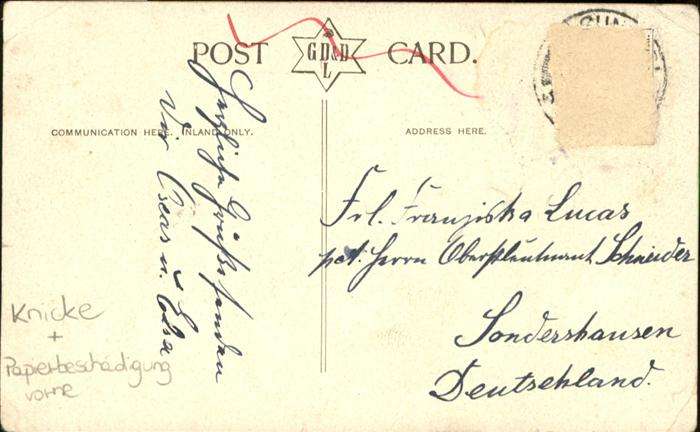 POST CARD.
G.D.&D.
L
COMMUNICATION HERE. INLAND ONLY.
ADDRESS HERE.
Herzliche Grüße senden
Oscar u. Edsa
Frl. Franziska Lucas
Herrn Oberstleutnant Schneider
Sondershausen
Deutschland.
Knicke
+
Papierbeschädigung
vorne